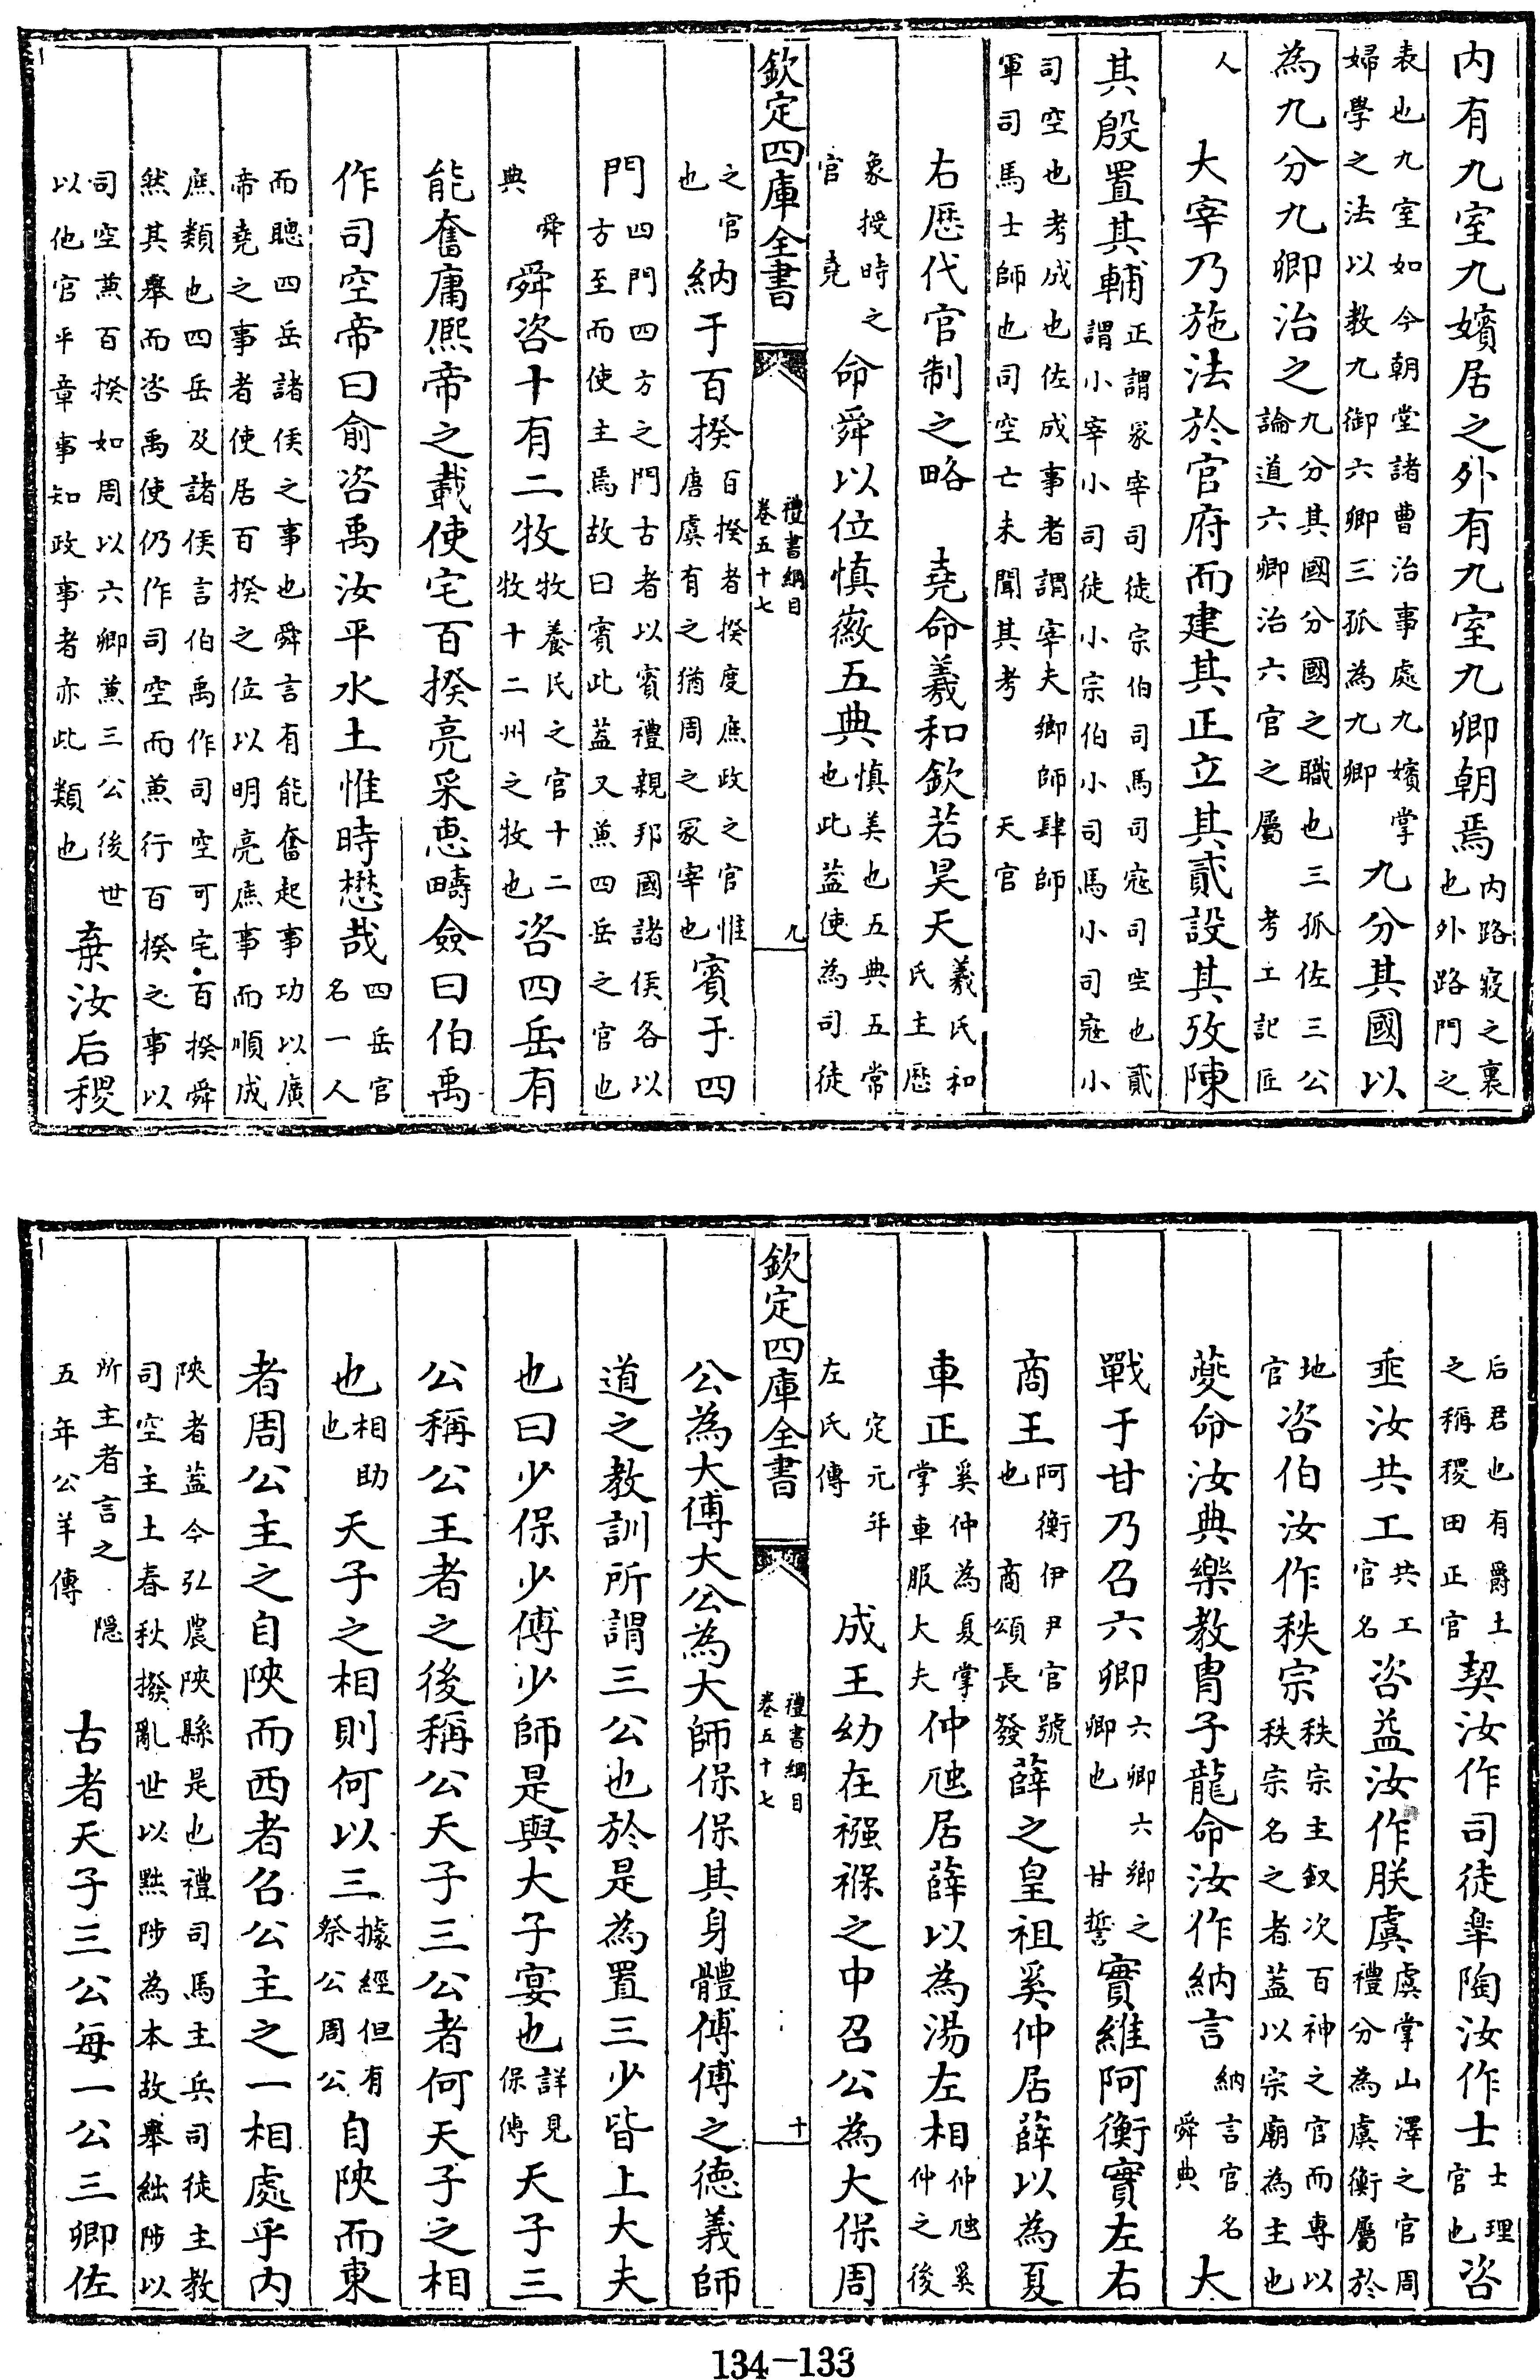 内有九室九嬪居之外有九室九卿朝焉内路寢之裏也外路門之
表也九室如今朝堂諸曹治事處九嬪掌婦學之法以教九御六卿三孤為九卿九分其國以
為九分九卿治之九分其國分國之職也三孤佐三公論道六卿治六官之屬 考工記匠
人 大宰乃施法於官府而建其正立其貳設其攷陳
其殷置其輔正謂冢宰司徒宗伯司馬司寇司空也貳謂小宰小司徒小宗伯小司馬小司寇小
司空也考成也佐成事者謂宰夫鄉師肆師軍司馬士師也司空亡未聞其考 天官
右歴代官制之略 堯命羲和欽若昊天羲氏和氏主歴
象授時之官 堯命舜以位慎徽五典慎美也五典五常也此蓋使為司徒
欽定四庫全書 禮書綱目 卷五十七 九
之官也納于百揆百揆者揆度庶政之官惟唐虞有之猶周之冢宰也賓于四
門四門四方之門古者以賓禮親邦國諸侯各以方至而使主焉故曰賓此蓋又兼四岳之官也
舜典 舜咨十有二牧牧養民之官十二牧十二州之牧也咨四岳有
能奮庸熈帝之載使宅百揆亮采惠疇僉曰伯禹
作司空帝曰俞咨禹汝平水土惟時懋哉四岳官名一人
而聰四岳諸侯之事也舜言有能奮起事功以廣帝堯之事者使居百揆之位以明亮庶事而順成
庶類也四岳及諸侯言伯禹作司空可宅百揆舜然其舉而咨禹使仍作司空而兼行百揆之事以
司空兼百揆如周以六卿兼三公後世以他官平章事知政事者亦此類也棄汝后稷
后君也有爵土之稱稷田正官契汝作司徒臯陶汝作士士理官也咨
垂汝共工共工官名咨益汝作朕虞虞掌山澤之官周禮分為虞衡屬於
地官咨伯汝作秩宗秩宗主叙次百神之官而專以秩宗名之者蓋以宗廟為主也
夔命汝典樂教胄子龍命汝作納言納言官名 舜典 大
戰于甘乃召六卿六卿六鄉之卿也 甘誓 實維阿衡實左右
商王阿衡伊尹官號也 商頌長發 薛之皇祖奚仲居薛以為夏
車正奚仲為夏掌掌車服大夫仲虺居薛以為湯左相仲虺奚仲之後
定元年左氏傳 成王幼在襁褓之中召公為大保周
欽定四庫全書 禮書綱目 卷五十七 十
公為大傅大公為大師保保其身體傅傅之德義師
道之教訓所謂三公也於是為置三少皆上大夫
也曰少保少傅少師是與大子宴也詳見保傅 天子三
公稱公王者之後稱公天子三公者何天子之相
也相助也 天子之相則何以三據經但有祭公周公自陜而東
者周公主之自陜而西者召公主之一相處乎内
陜者蓋今弘農陜縣是也禮司馬主兵司徒主教司空主土春秋撥亂世以黜陟為本故舉絀陟以
所主者言之 隱五年公羊傳 古者天子三公每一公三卿佐
134-133